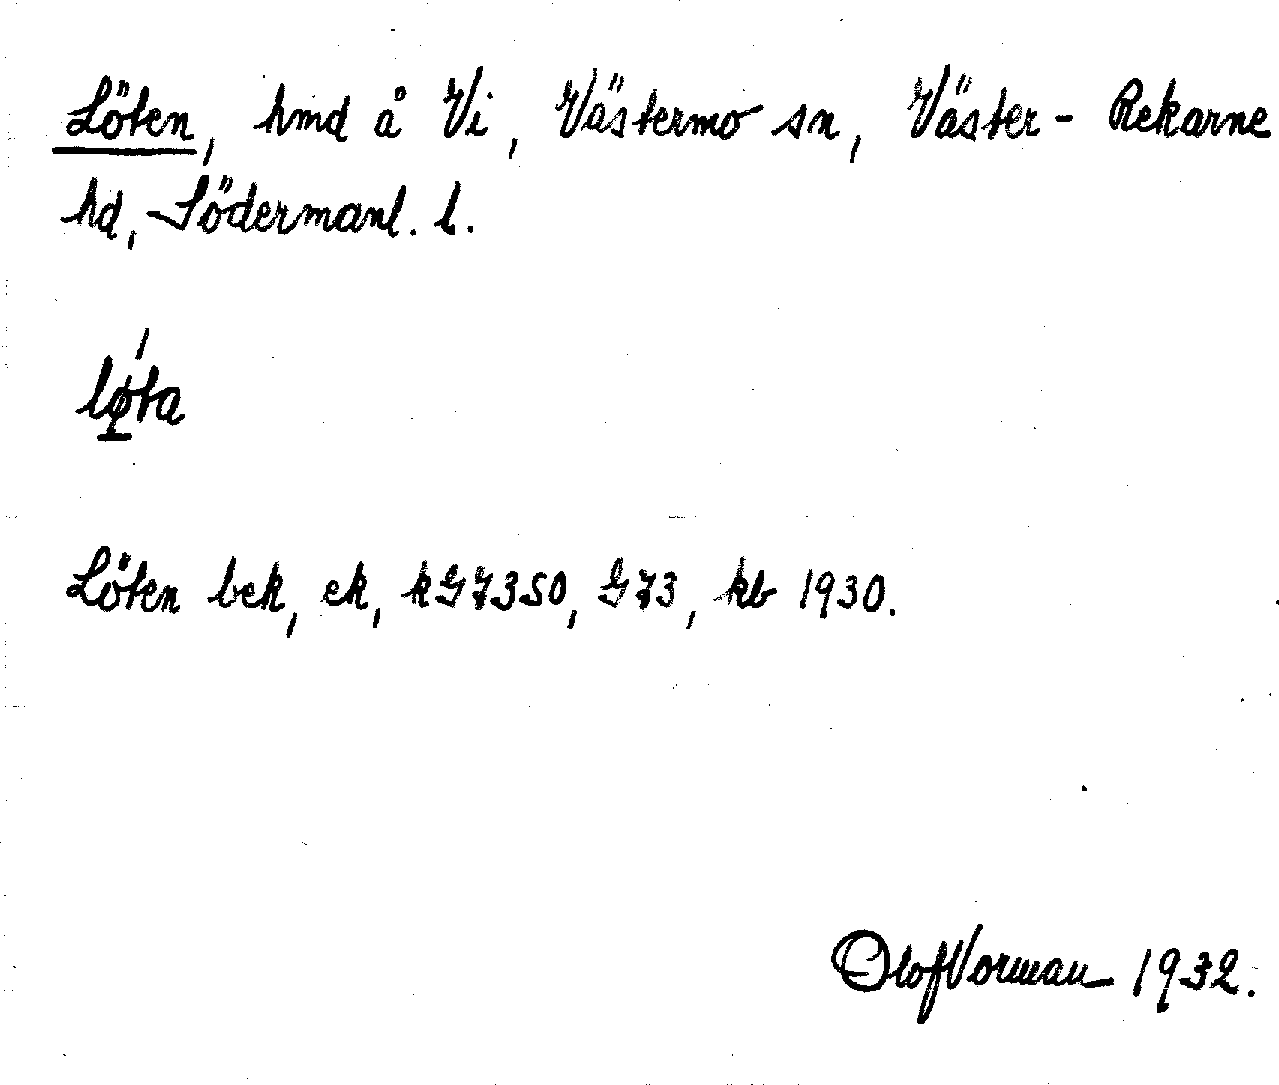 Löten, hmd å Vi, Västermo sn, Väster-Rekarne
hd, Södermanl. l.
lǿ̱ta
Löten bek, ek, kG7350, G73, kb 1930.
Olof Vorman 1932.